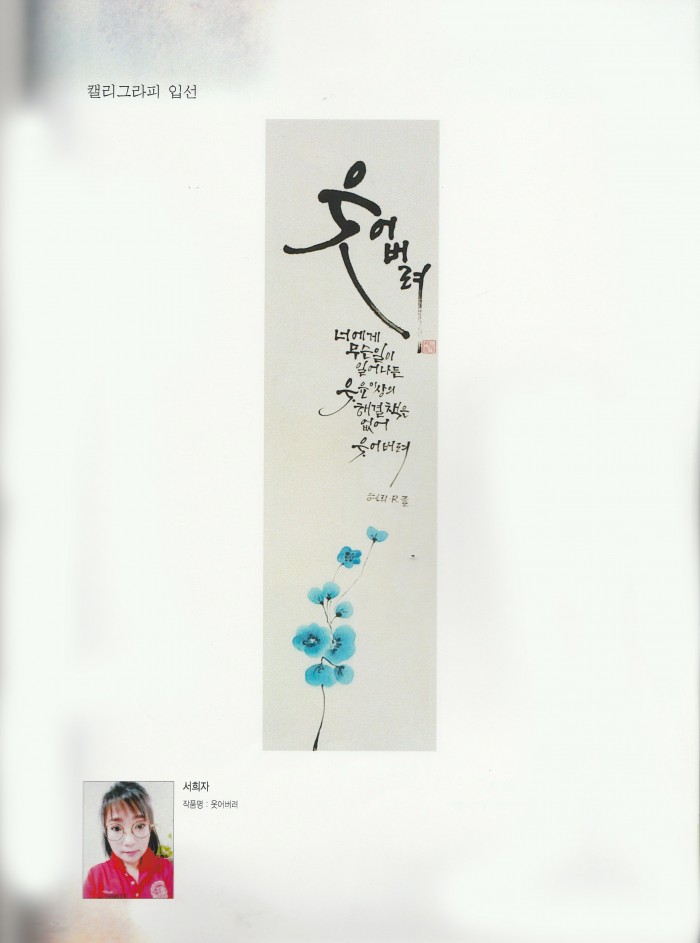 캘리그라피 입선
웃어버려
너에게
무슨일이
일어나든
웃음이상의
해결책은
없어
웃어버려
서희자
작품명 : 웃어버려